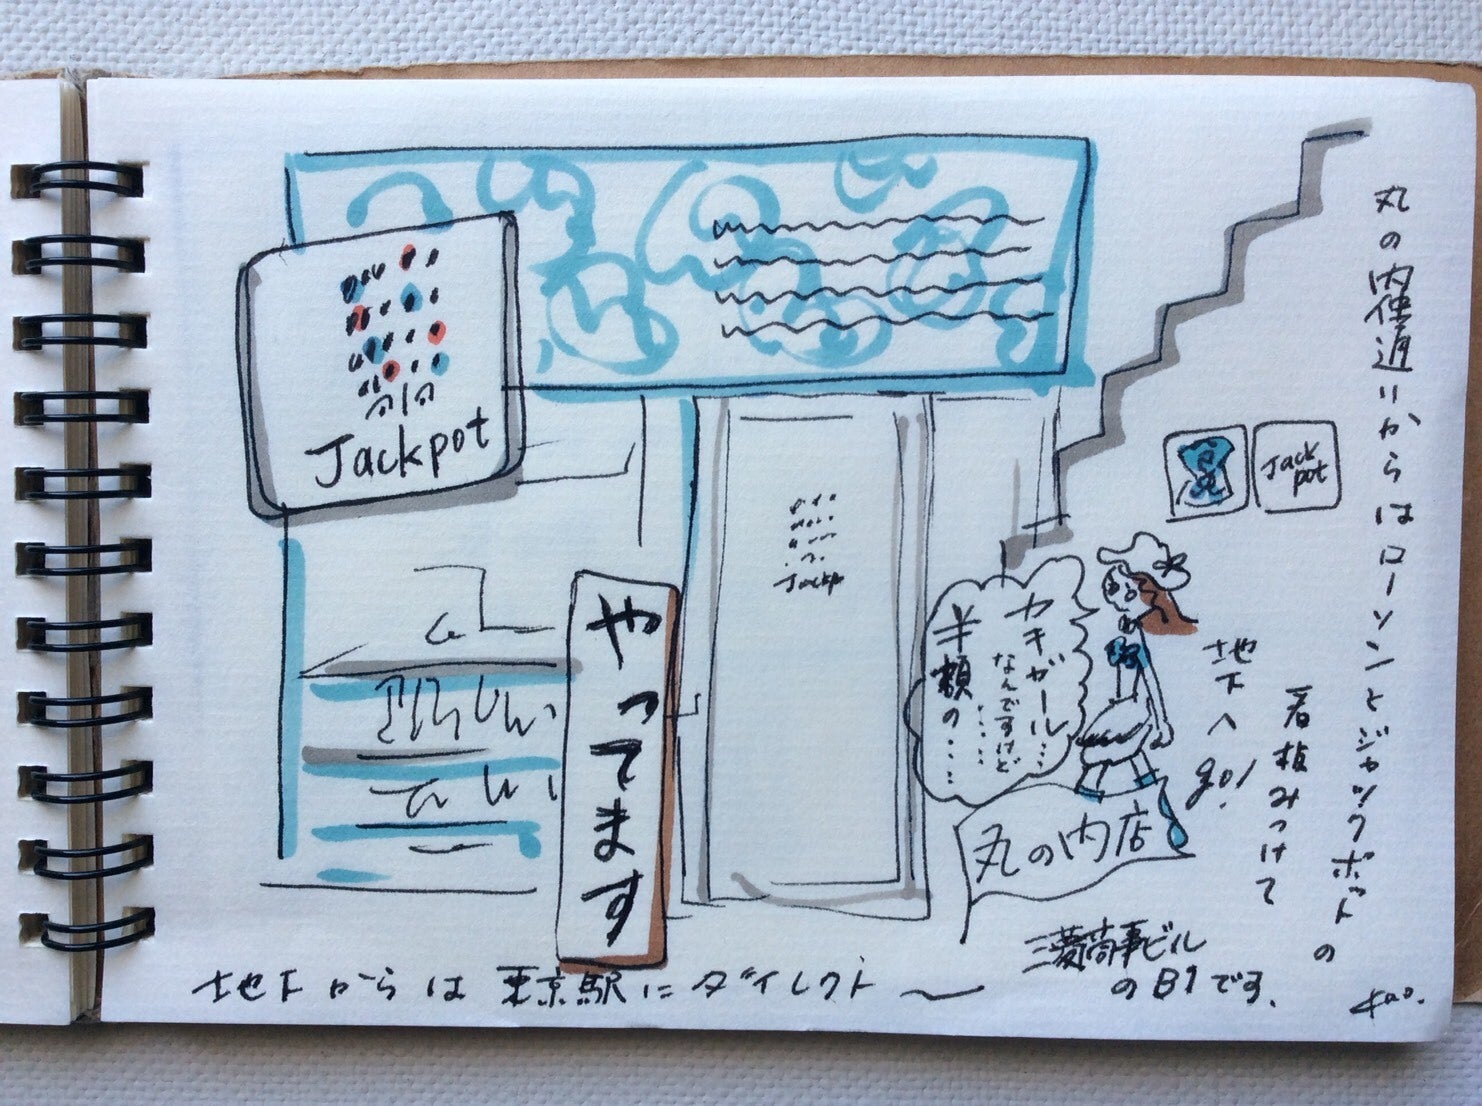 Jackpot
やってます
Jackp
カキガール…
なんですけど……
半額の……
丸の内店
Jack
pot
丸の内仲通りからはローソンとジャックポットの
看板みつけて
地下へ go!
三菱商事ビル
のB1です、
地下からは東京駅にダイレクト〜